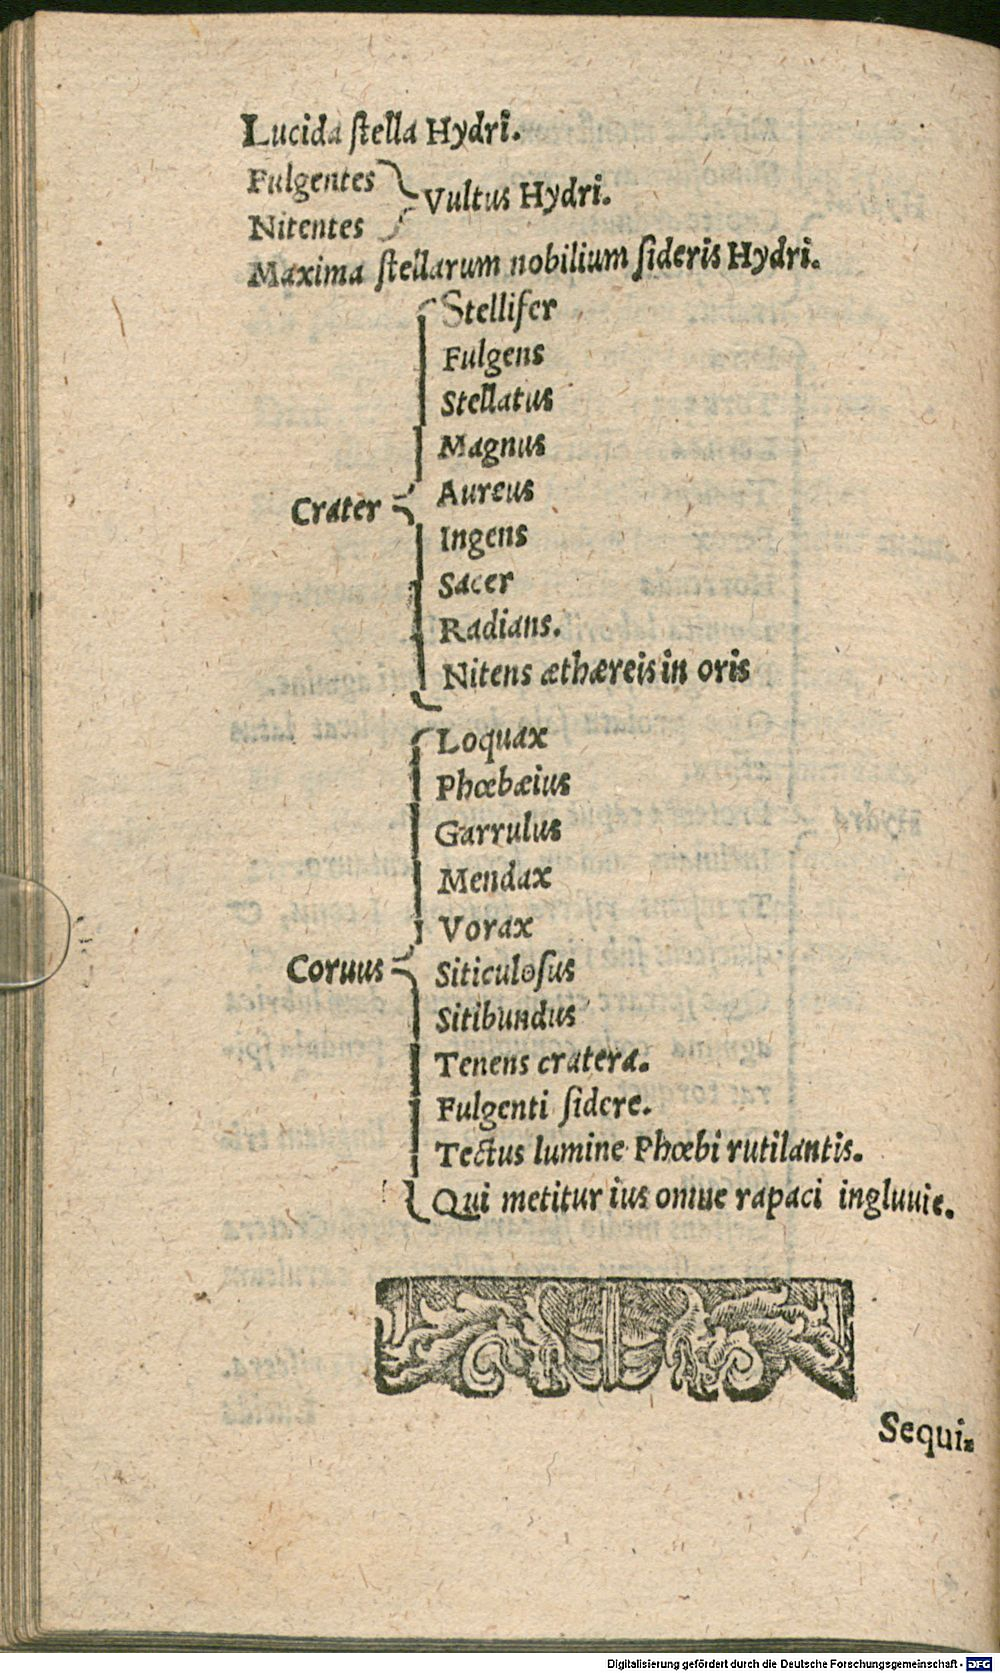 Lucida ſtella Hydri.
Fulgentes
Nitentes
Vultus Hydri.
Maxima ſtellarum nobilium ſideris Hydri.
Crater
Stellifer
Fulgens
Stellatus
Magnus
Aureus
Ingens
Sacer
Radians.
Nitens æthæreis in oris
Coruus
Loquax
Phœbæius
Garrulus
Mendax
Vorax
Siticuloſus
Sitibundus
Tenens cratera.
Fulgenti ſidere.
Tectus lumine Phœbi rutilantis.
Qui metitur ius omne rapaci ingluuie.
Sequi-
Digitalisierung gefördert durch die Deutsche Forschungsgemeinschaft - DFG